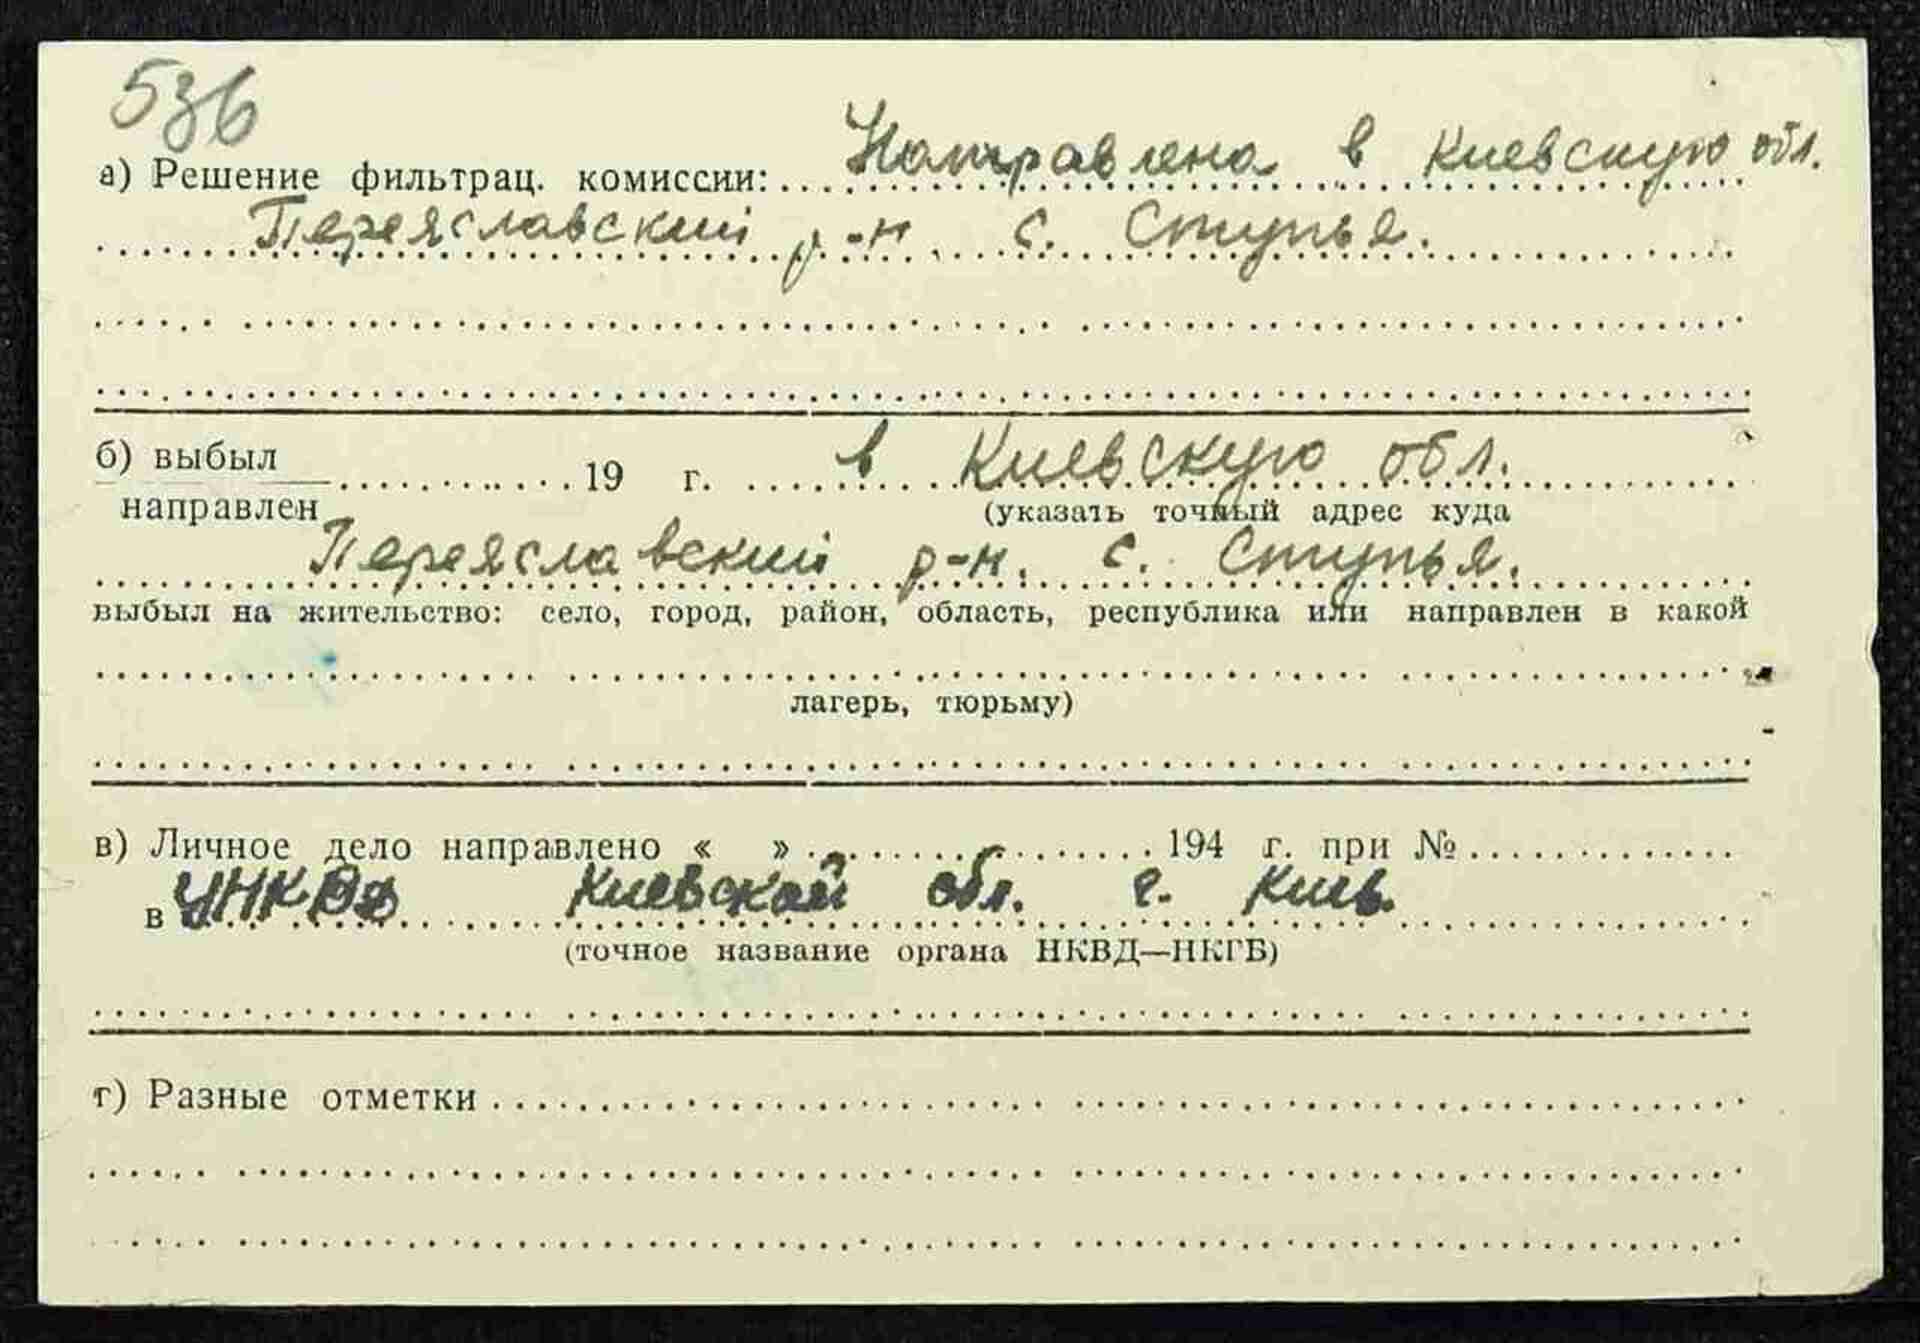 536
а) Решение фильтрац. комиссии: Направлена в Киевскую обл.
Переяславский р-н. с. Ступья.
б) выбыл
направлен
19 г. в Киевскую обл.
(указать точный адрес куда
Переяславский р-н. с. Ступья.
выбыл на жительство: село, город, район, область, республика или направлен в какой
лагерь, тюрьму)
в) Личное дело направлено « » 194 г. при №
в УНКВД Киевской обл. г. Киев.
(точное название органа НКВД—НКГБ)
г) Разные отметки